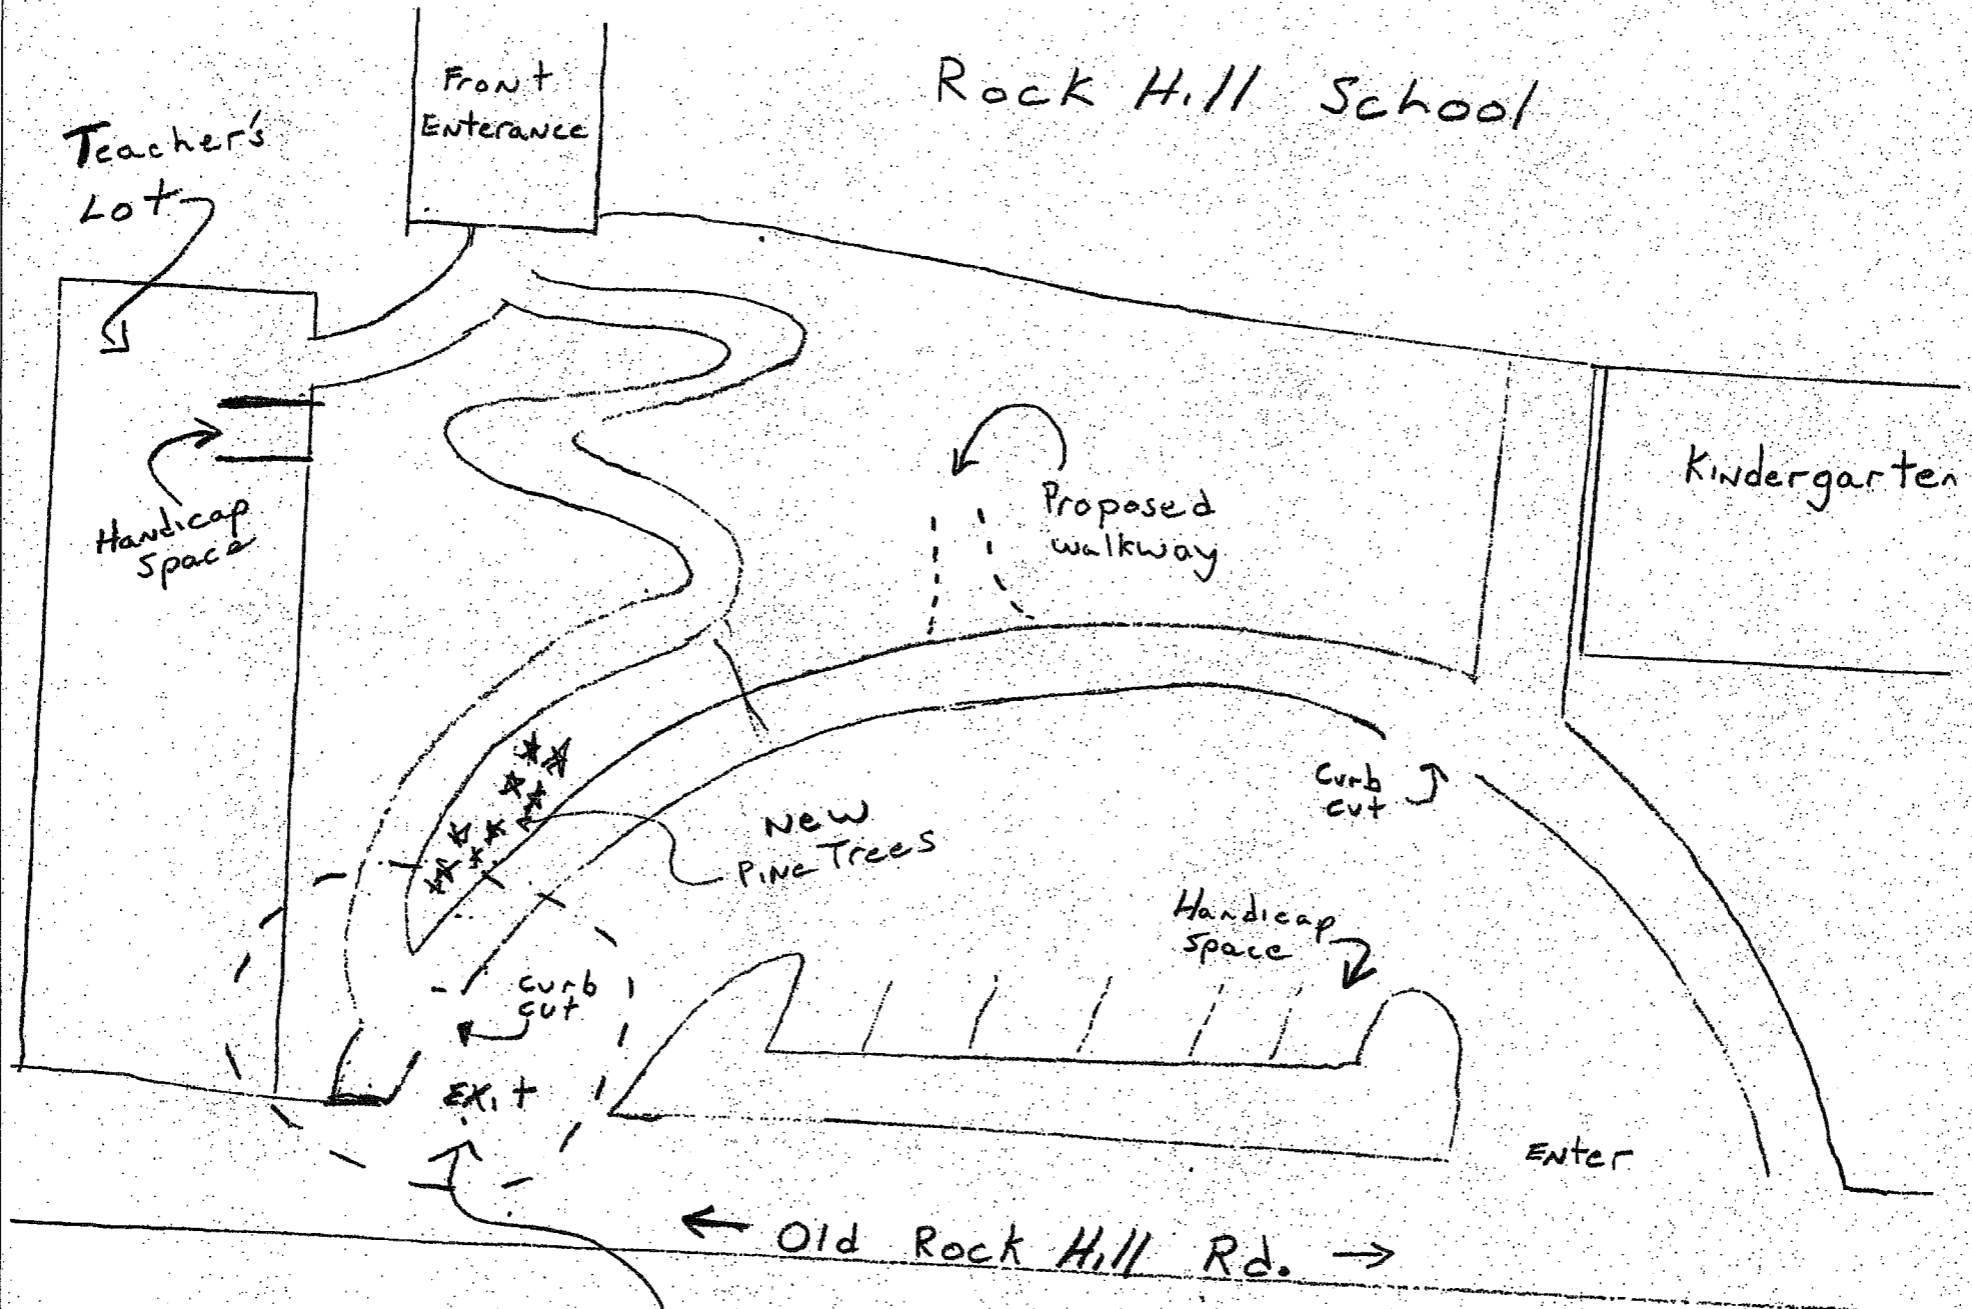 Rock Hill School
Front
Enterance
Teacher's
Lot
Handicap
space
Proposed
walkway
Kindergarten
Curb
cut
New
Pine Trees
Handicap
space
curb
cut
Exit
Enter
← Old Rock Hill Rd. →